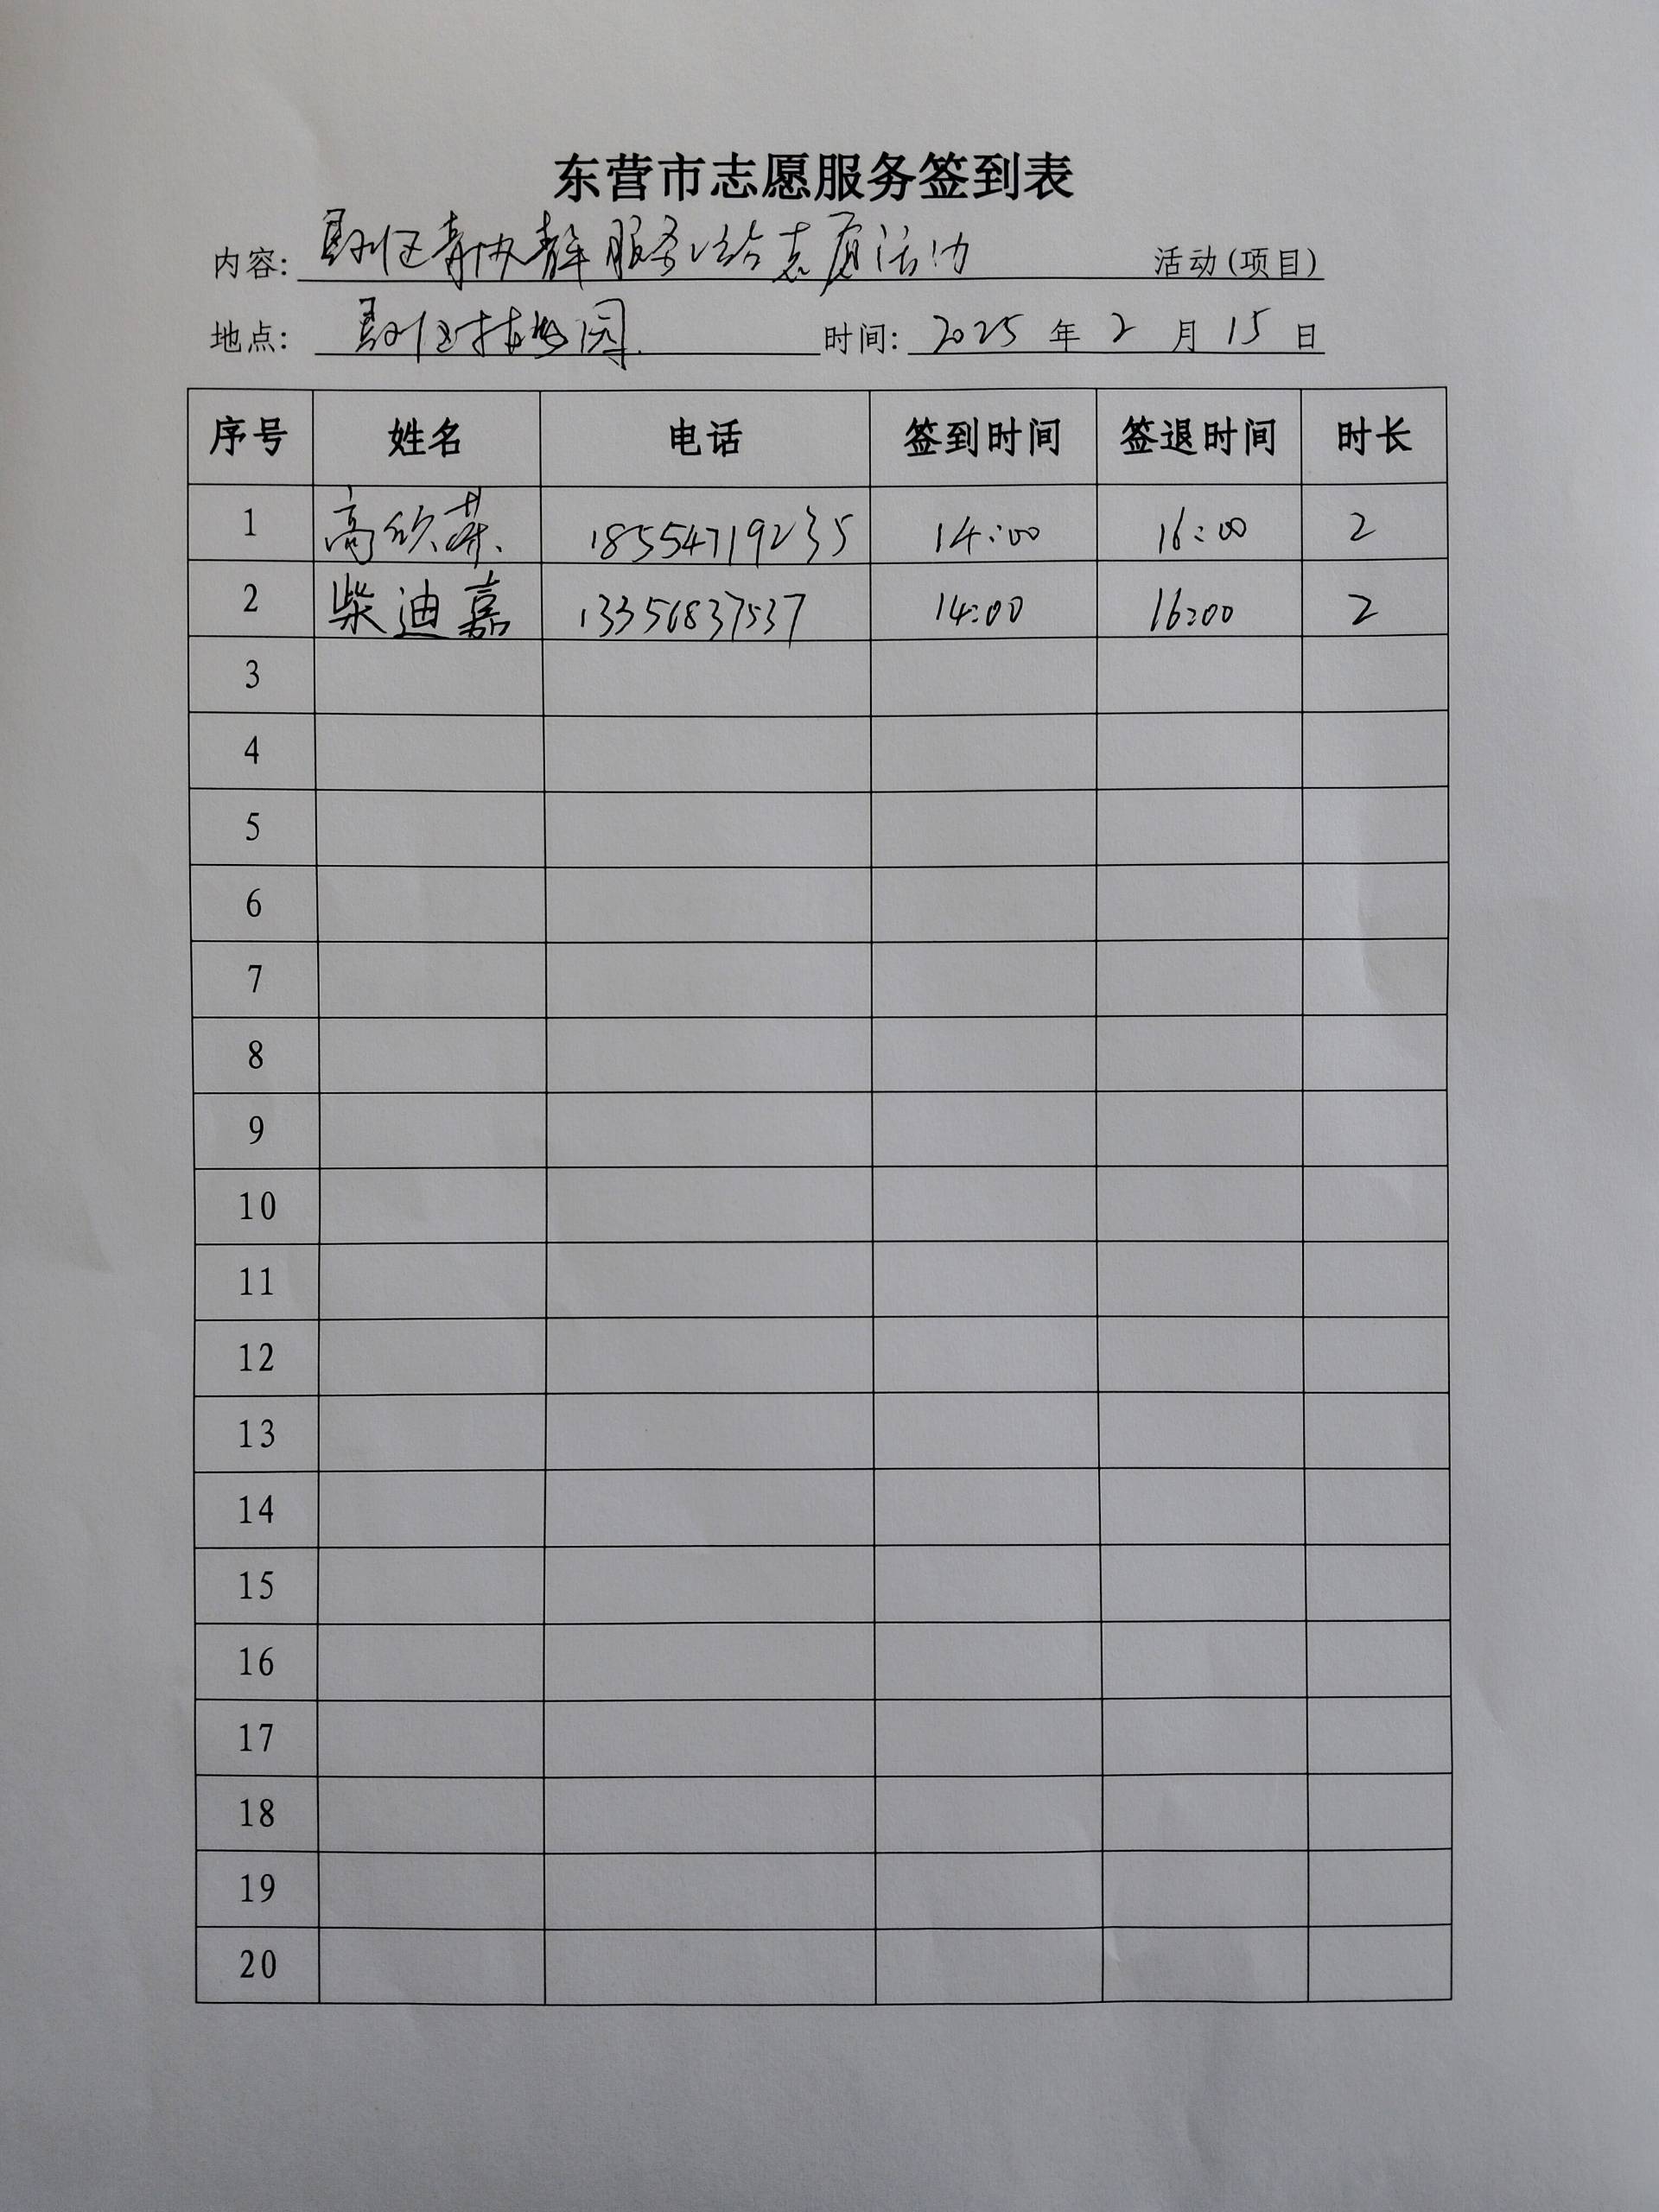 东营市志愿服务签到表
内容: 垦利区青协 服务 志愿活动 活动(项目)
地点: 垦利区 园 时间: 2025 年 2 月 15 日
序号 姓名 电话 签到时间 签退时间 时长
1 高欣 18554719235 14:00 16:00 2
2 柴迪嘉 13356837537 14:00 16:00 2
3
4
5
6
7
8
9
10
11
12
13
14
15
16
17
18
19
20